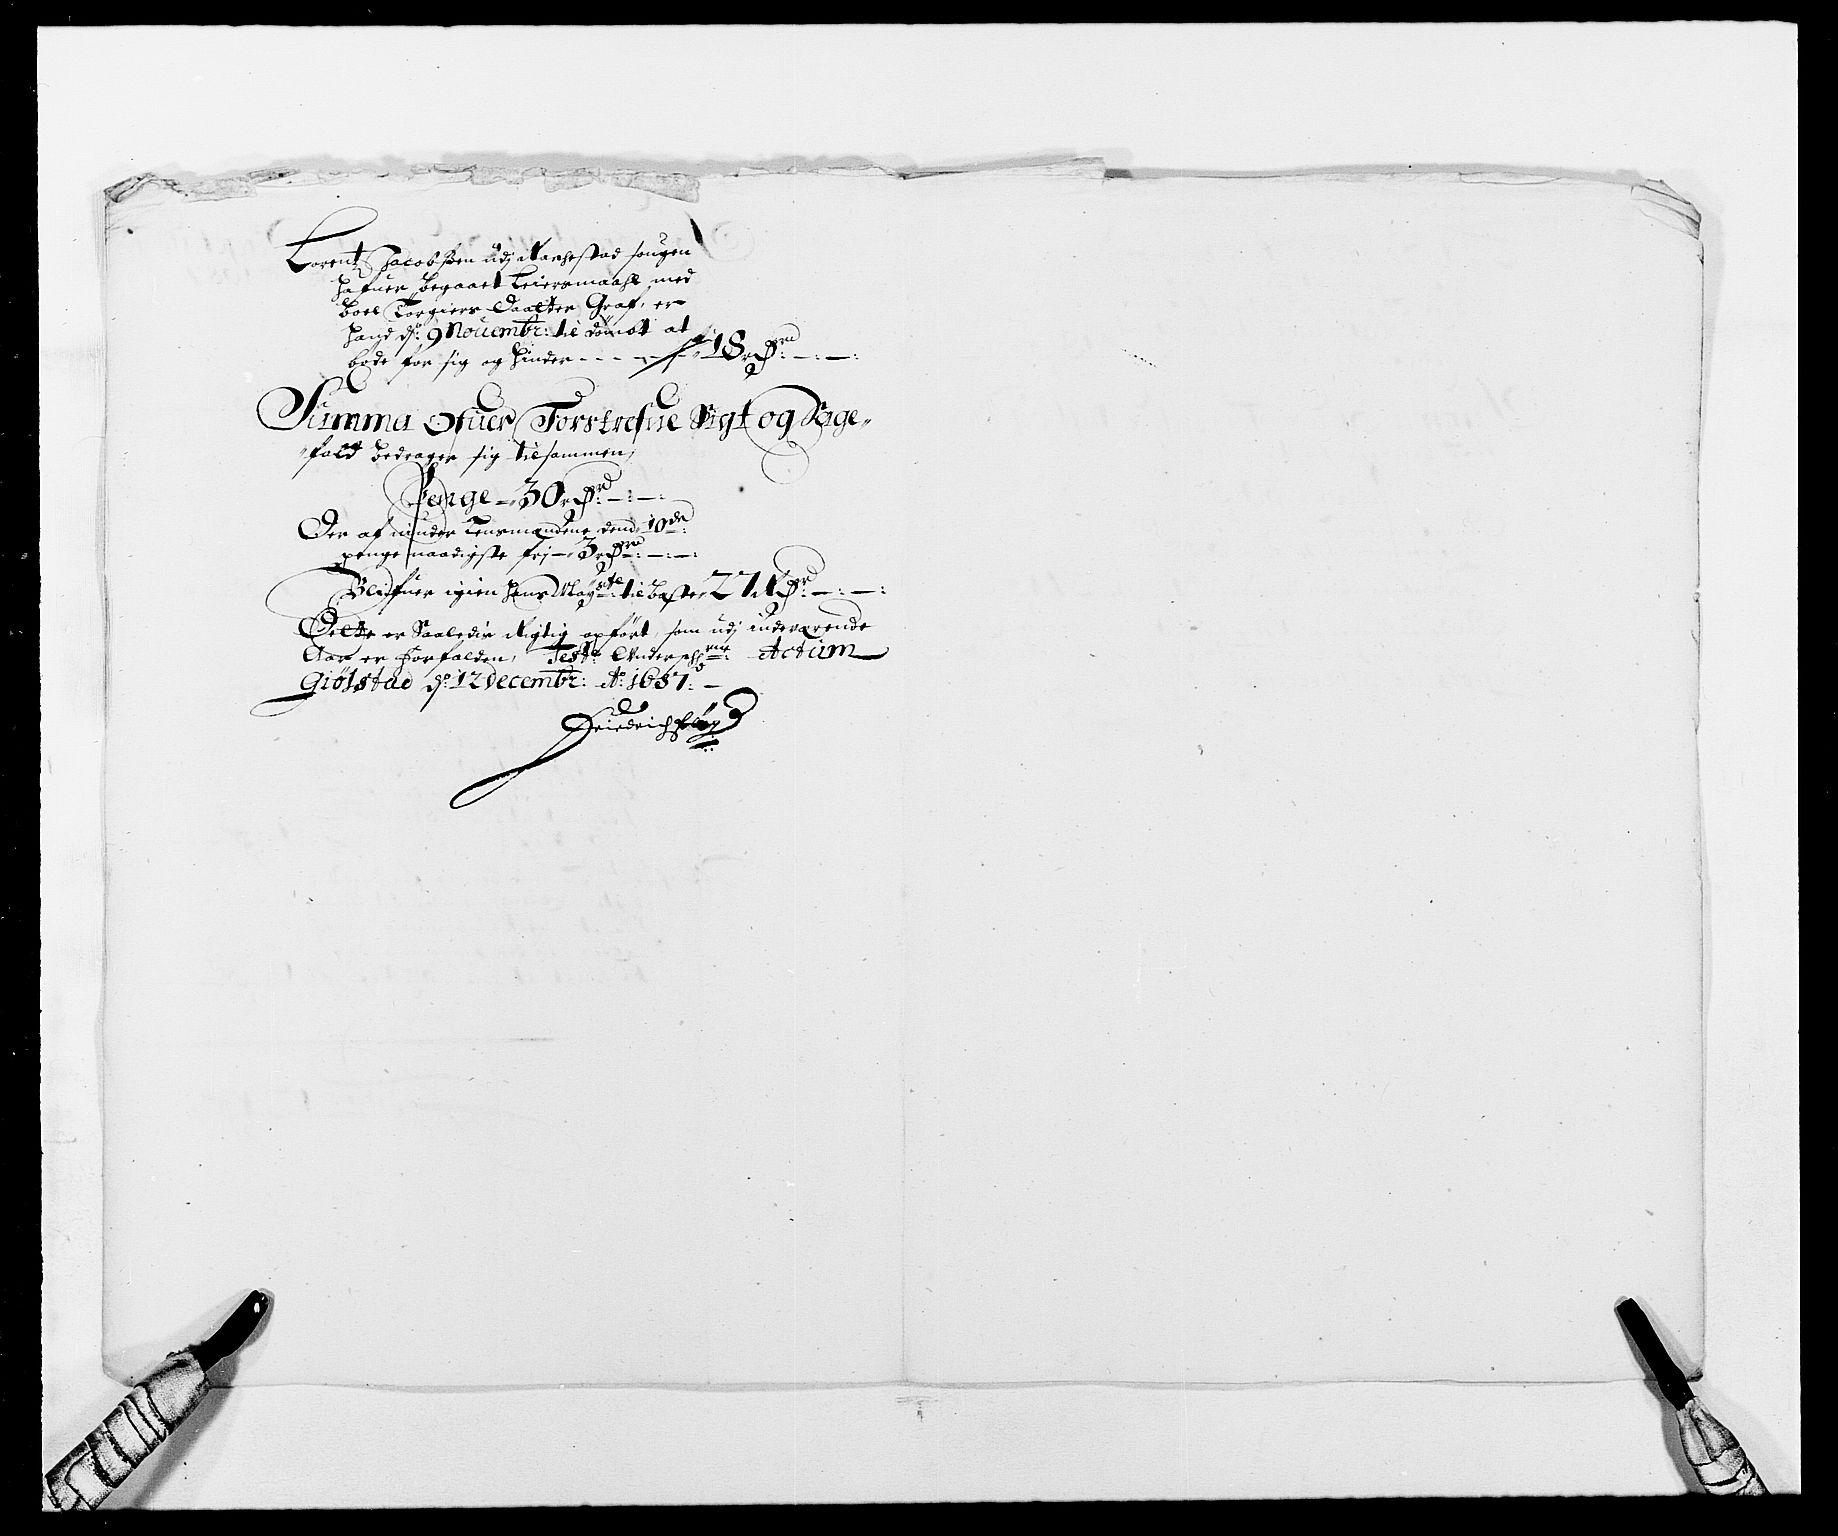 Lorentz Jacobßen udj Rachestad sougen
hafuer begaaet Leiermaahl med
boel Torgiers Daatter Graf, er
hand dn: 9 Nouembr: til dömdt at
bøde for sig og hinder - - - - 18 Rdr: — : — :
Summa Ofuer Forskrefne Sigt og Sage„
„fald bedrager sig tilsammen,
Penge — 30 Rdr: — : — :
Der af nÿnder Lensmandene dend 10de:
penge naadigste frj — 3 Rdr: — : — :
Blifuer igien hans Maÿsts: til beste, 27 Rdr: — : — :
Dette er Saaledis Rigtig opfört, som udj indeværende
Aar er forfalden, Test: Underschrne: Actum
Giölstad dn: 12 decembr: Ao: 1687: —
Friedrich